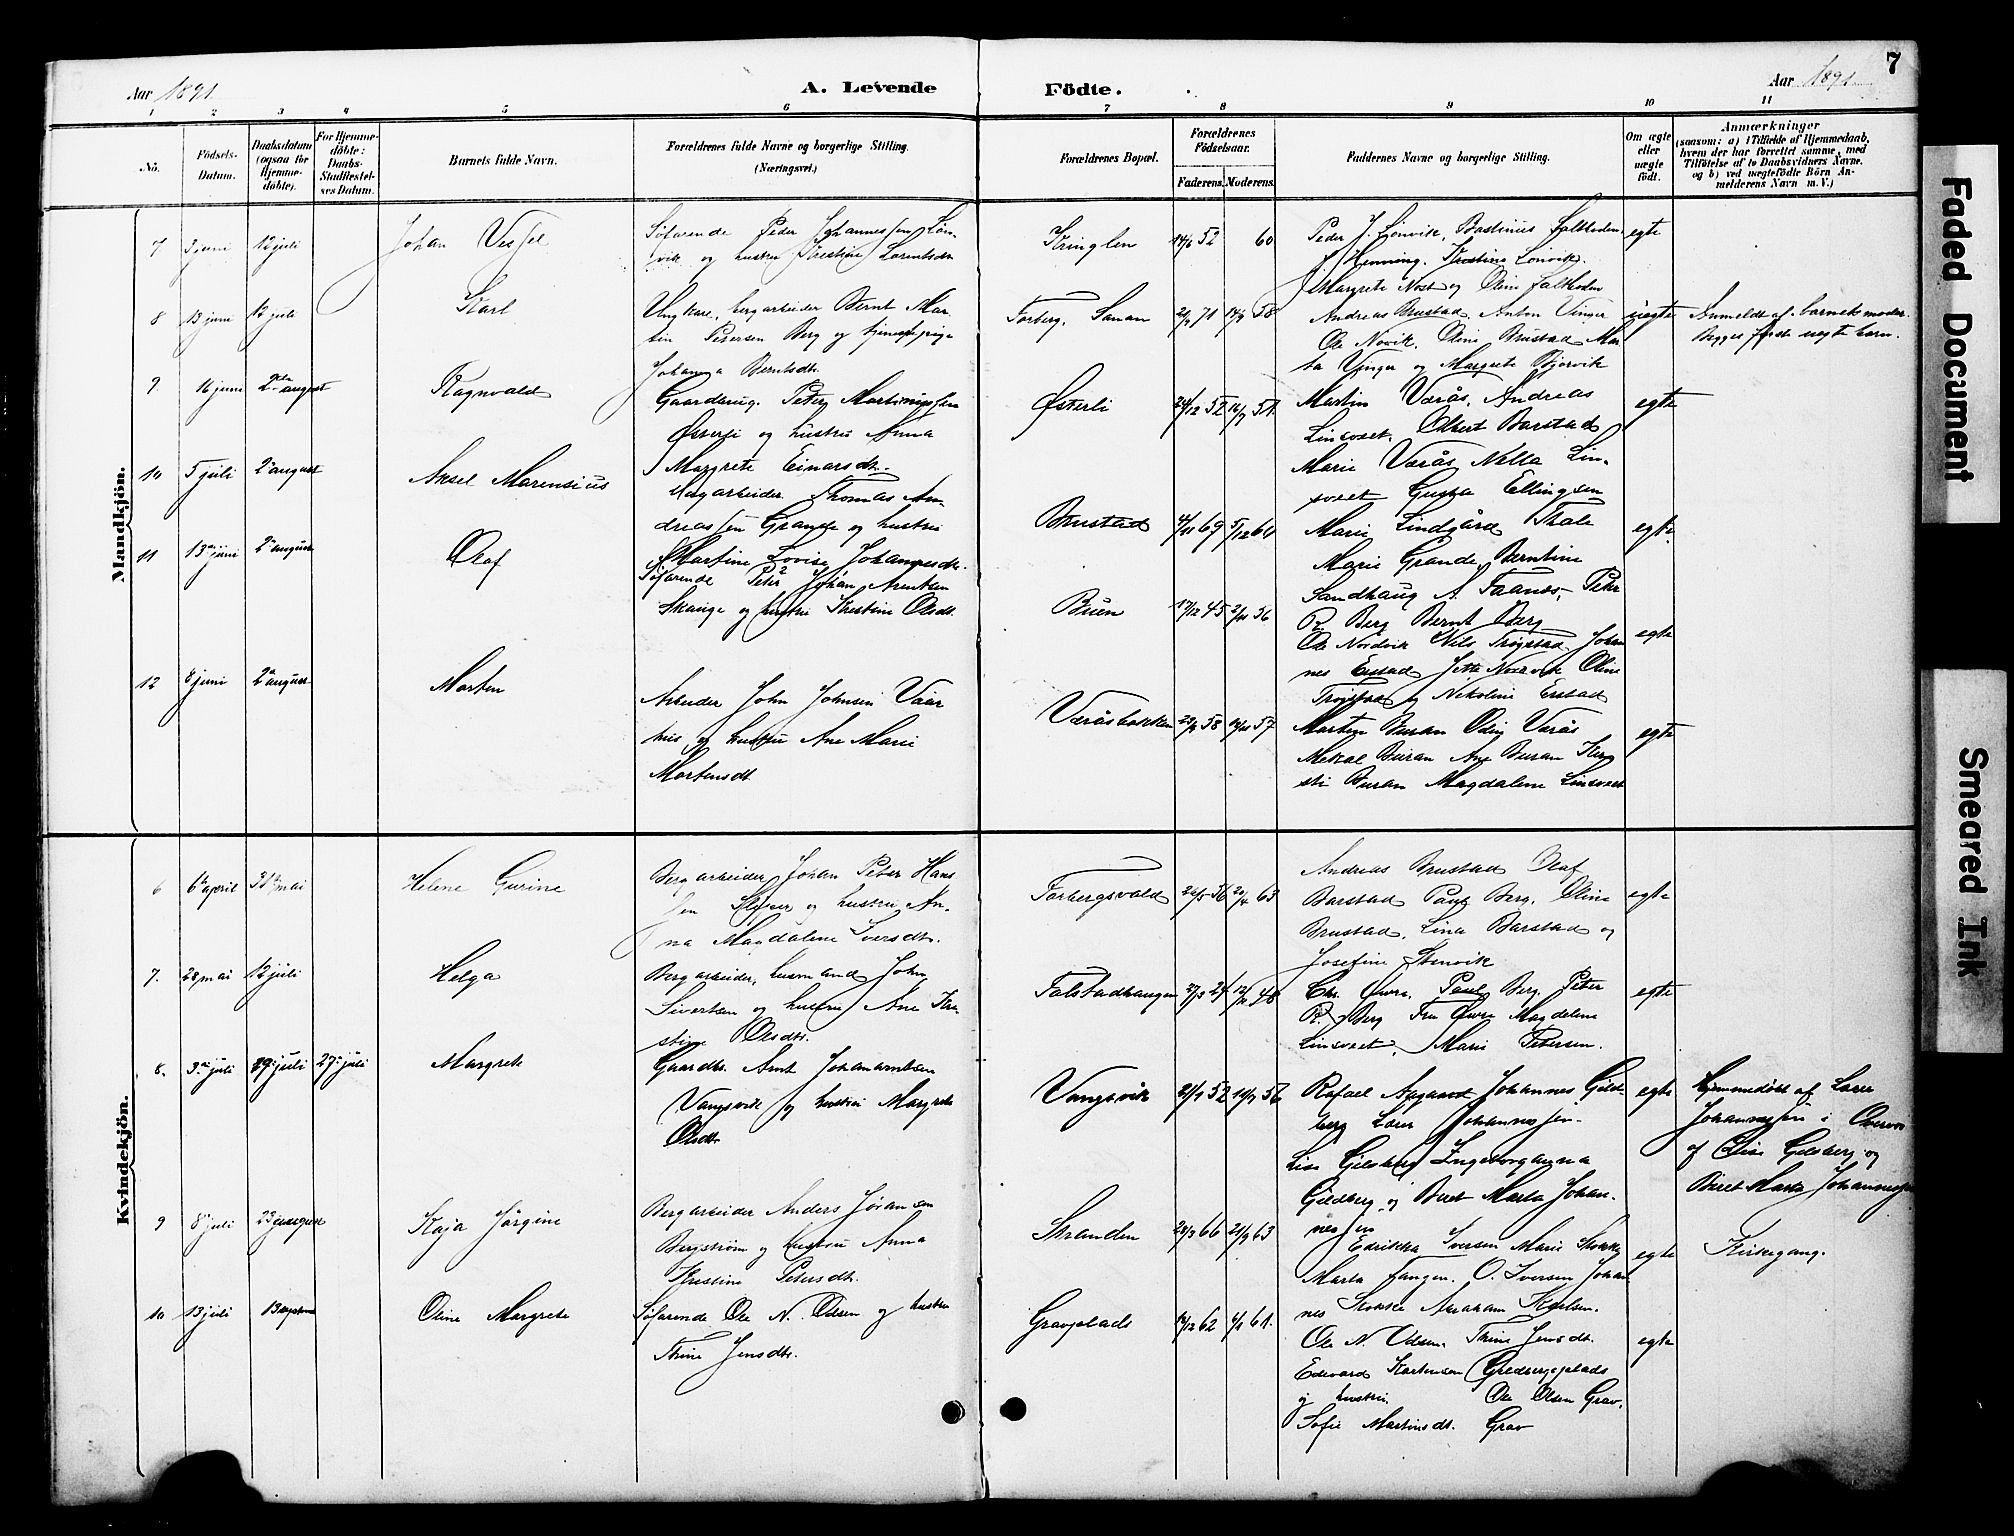 7
Aar 1891
A. Levende
Födte.
Aar 1891
1 2 3 4 5 6 7 8 9 10 11
No.
Födsels-Datum.
Daabsdatum (ogsaa for Hjemme-döbte).
For Hjemme-döbte: Daabs-Stadfæstel-ses Datum.
Barnets fulde Navn.
Forældrenes fulde Navne og borgerlige Stilling.
(Næringsvei.)
Forældrenes Bopæl.
Forældrenes Födselsaar.
Faderens. Moderens.
Faddernes Navne og borgerlige Stilling.
Om ægte eller uægte födt.
Anmærkninger
(saasom: a) i Tilfælde af Hjemmedaab, hvem der har forrettet samme, med Tilföielse af to Daabsvidners Navne. og b) ved uægtefödte Börn Anmelderens Navn m. V.)
Mandkjön.
7 3 juni 12 juli Johan Vessel
Söfarende Peder Johannessen Lön-
vik og hustru Kristine Lorentsdt
Kringlen 14/6 52 60
Peder J. Lönvik, Bastinius Falkoden
J. Henning, Kristine Lönvik,
Margrete Nost og Oline Falkoden
egte
8 13 juni 12 juli Karl
Ungkarl, bergarbeider Bernt Mar
tin Petersen Berg og tjenestepige
Johanna Berntsdt.
Forberg, Sanan 21/2 71 14/9 58
Andreas Brustad, Anton Vinger
Ole Novik, Oline Brustad Mar
ta Vinger og Margrete Bjorvik
uegte
Anmeldt af barnets moder.
Begges første uegte barn.
9. 16 juni 2den august Ragnvald
Gaardbrug. Peter Martinussen
Østerli og hustru Anna
Margrete Einarsdt.
Østerli 24/12 52 16/7 51.
Martin Værås, Andreas
Linsvæt, Albert Barstad
Marie Værås Nella Lin-
svæt Gusta Ellingsen
egte
10 5 juli 2 august Aksel Marensius
Bergarbeider Thomas An
dreassen Grande og hustru
Martine Lovise Johannesdt.
Brustad 4/11 69 5/12 64
Marie Lindgård Thale
Marie Grande, Berntine
Sandhaug A. Faanes, Peter
R. Berg Bernt Berg
egte.
11 13de juni 2 august Olaf
Söfarende Peter Johan Arentsen
Skauge og hustru Kristine Olsdt.
Buen 17/12 45 2/11 56
Ole Nordvik Nils Trøgstad Johan
nes Erstad Jette Nordvik Oline
Trøgstad og Nikoline Erstad
egte
12 8 juni 2 august Morten
Arbeider John Johnsen Vaar
hus og hustru Ane Marie
Mortensdt
Væråsbakken 58 57
Morten Buran Odin Værås
Mekal Buran Ane Buran Ker
sti Buran Magdalene Linsvæt
egte
Kvindekjön.
6 6te april 31te mai Helene Gurine
Bergarbeider Johan Peter Hans
sen Slyper og hustru An-
na Magdalene Iversdt.
Forbergsvald 26/5 56 20/4 63
Andreas Brustad Olaf
Barstad Paul Berg, Oline
Brustad, Lina Barstad og
Josefine Stenvik
egte
7. 28 mai 12 juli Helga
Bergarbeider, husmand John
Sivertsen og hustru Ane Kri-
stine Olsdt.
Falstadhaugen 48
Chr. Øvre, Paul Berg, Peter
R. Berg Fru Øvre Magdalene
Linsvæt, Marie Petersen.
egte
8. 3de juli 29 juli 27 juli Margrete
Gaardbr. Arnt Johanarntsen
Vangsvik og hustru Margrete
Olsdt.
Vangsvik 21/1 52 56
Rafael Aagaard Johannes Gild-
berg Lars Johannessen.
Lise Gildberg Ingeborganna
Gildberg og Beret Marta Johan-
nessen
egte
Hjemmedöbt af Lars
Johannessen i
af Elise Gildberg og
Beret Marta Johannessen
9 8 juli 23 august Kaja Jørgine
Bergarbeider Anders Johansen
Bergstrøm og hustru Anna
Kristine Petersdt.
Stranden 23/3 66 21/9 63
Edrikka Iversen Marie Stokke
Marta Langen. O. Iversen Johan
nes Stokke Abraham Karlsen.
egte
Kirkegang.
10 13 juli 13 septem Oline Margrete
Söfarende Ole N. Odsen og hustru
Trine Jensdt.
Gravplads 14/12 62 4/1 61.
Ole N. Odsen, Trine Jensdt.
Edevard Kortensen Gildbergplads
og hustru. Ole Olsen Grav,
Sofie Martinsdt. Grav
egte
Faded Document
Smeared Ink